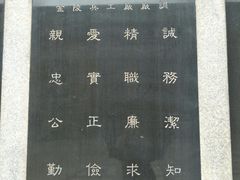 金陵兵工廠廠訓
親愛精誠
忠實職務
公正廉潔
勤儉求知